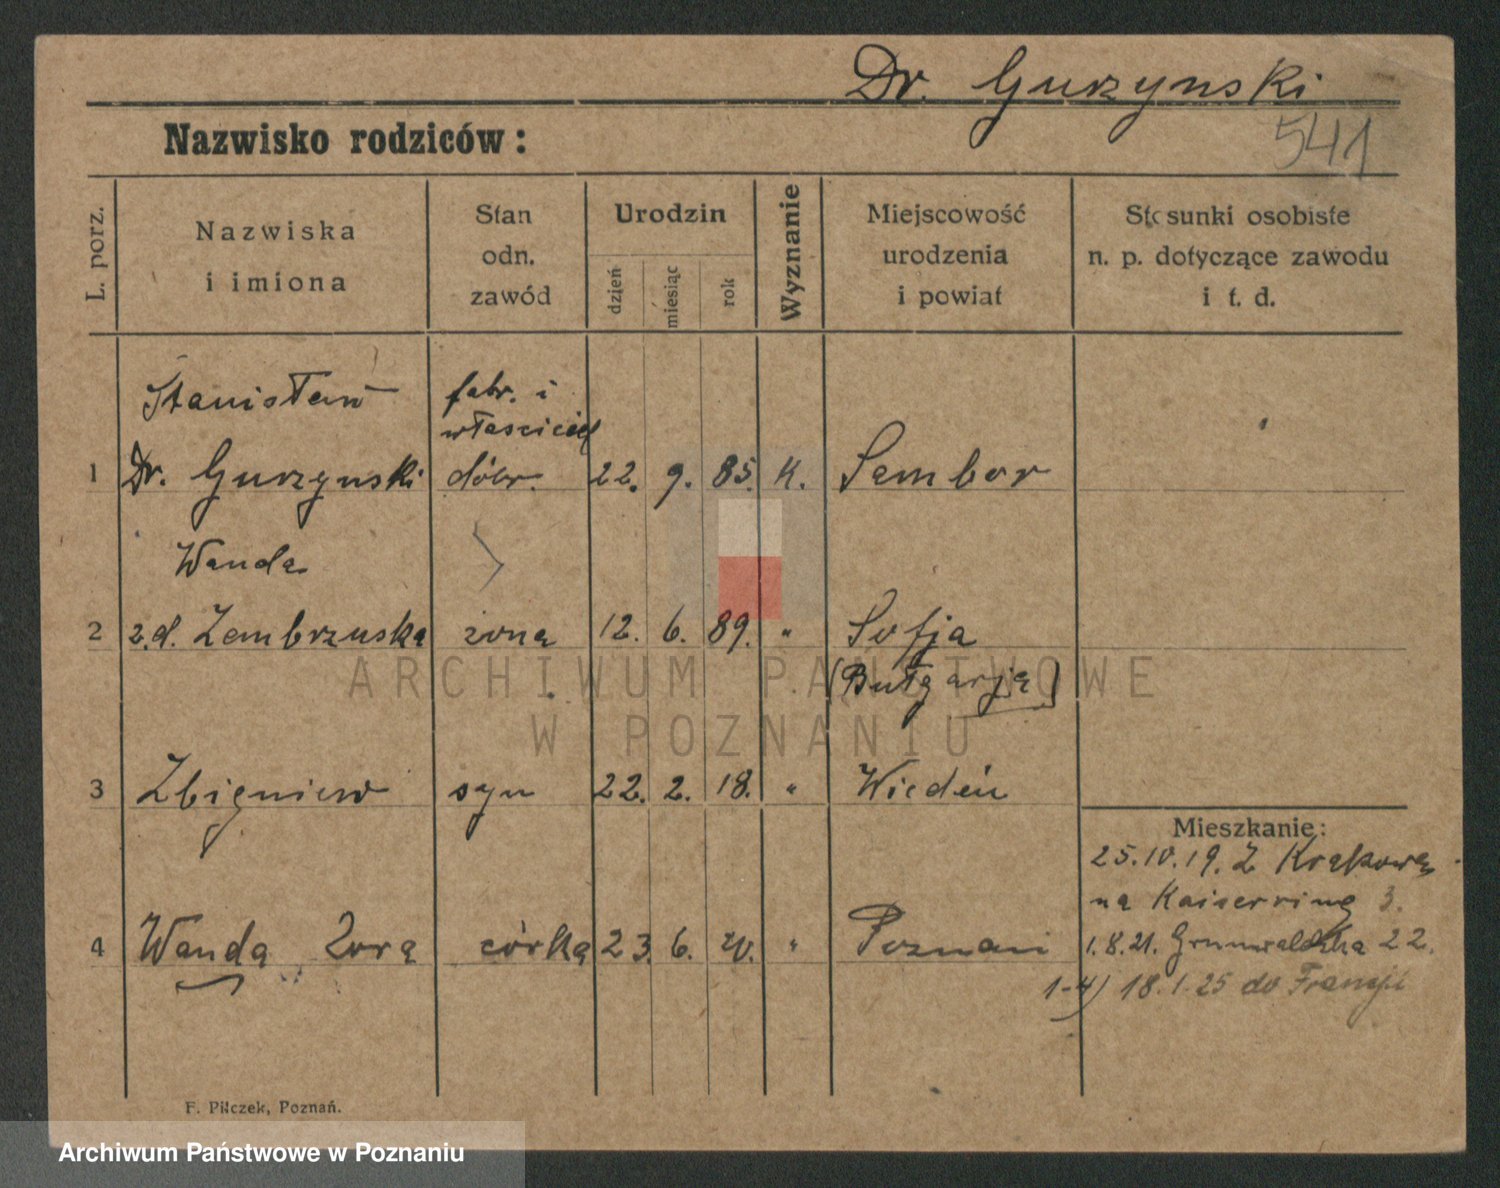 Dr. Gurzynski
541
Nazwisko rodziców:
L. porz.
Nazwiska
i imiona
Stan
odn.
zawód
Urodzin
dzień
miesiąc
rok
Wyznanie
Miejscowość
urodzenia
i powiat
Stosunki osobiste
n. p. dotyczące zawodu
i t. d.
Stanisław
fabr. i
właściciel
1 Dr. Gurzynski dóbr. 22. 9. 85. K. Sambor
Wanda
2 z.d. Zembrzuska żona 12. 6. 89. " Sofja
(Bułgarja)
3 Zbigniew syn 22. 2. 18. " Wiedeń
Mieszkanie:
25.10.19. Z Krakowa
na Kaiserring 3.
4 Wanda córka 23. 6. 20. " Poznań
1.8.21. Grunwaldzka 22.
1-4) 18.1.25 do Francji
F. Pilczek, Poznań.
ARCHIWUM PAŃSTWOWE
W POZNANIU
Archiwum Państwowe w Poznaniu